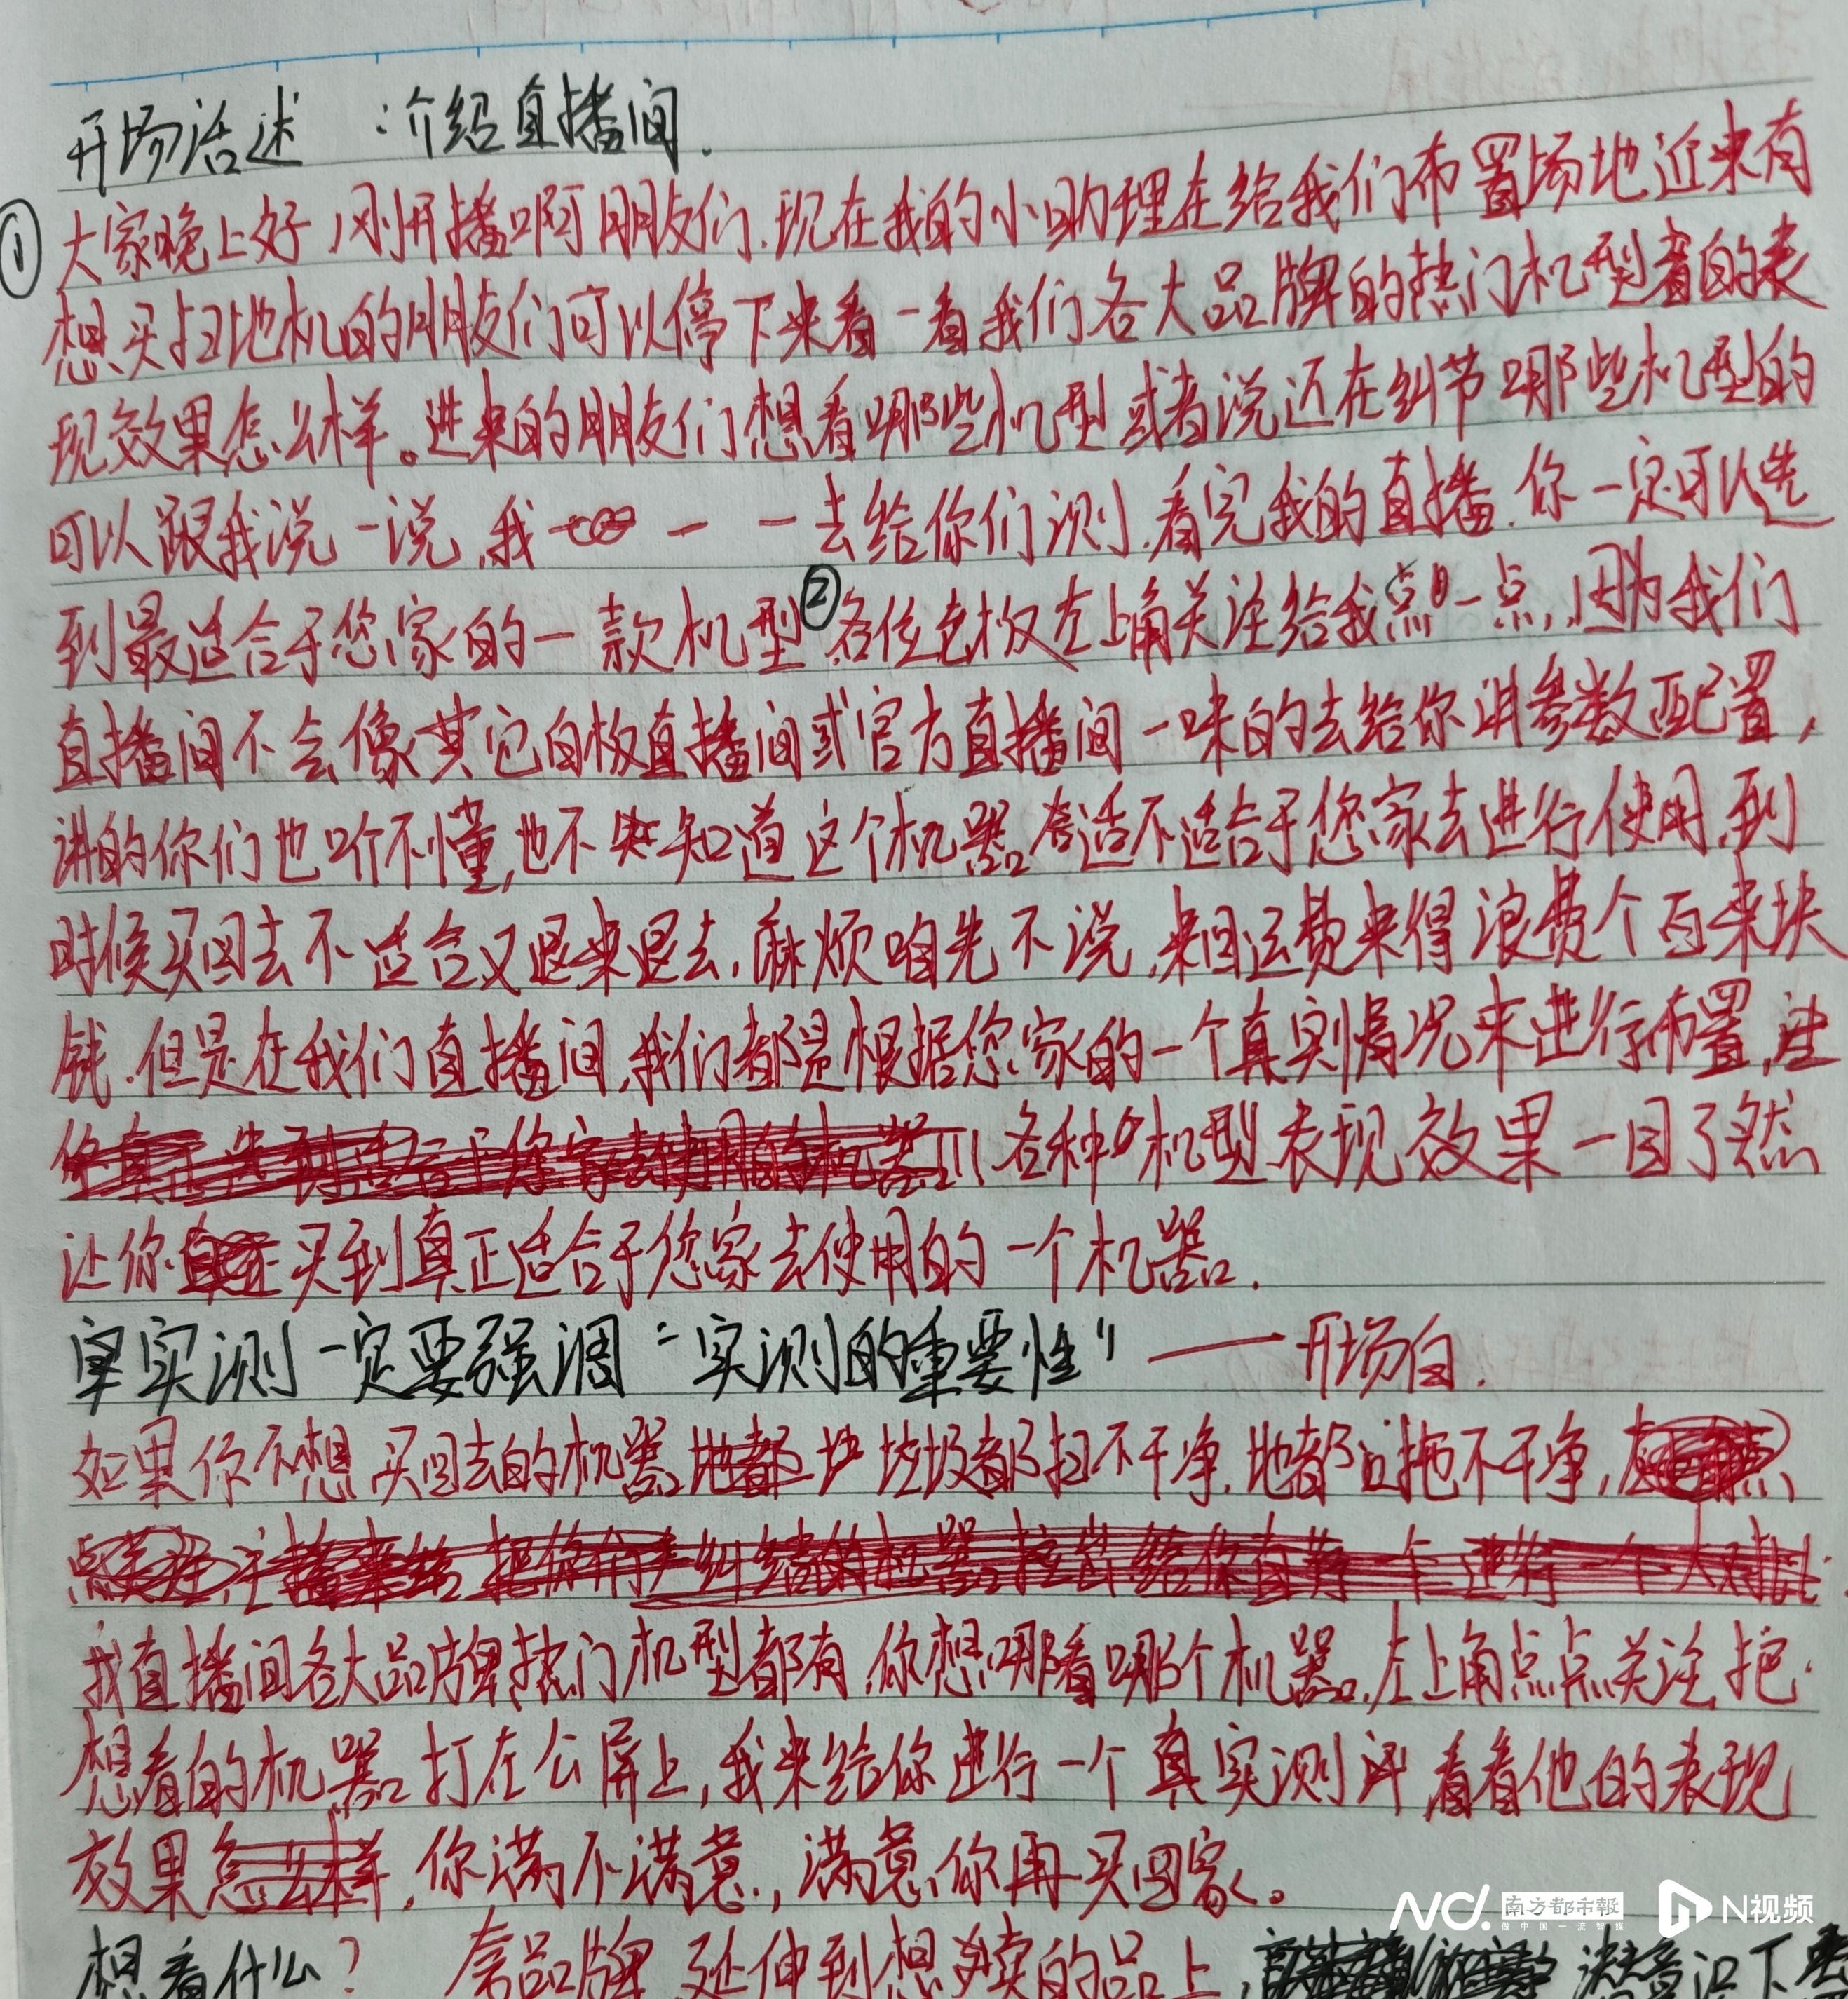 开场话述：介绍直播间.
① 大家晚上好,刚开播啊朋友们.现在我的小助理在给我们布置场地近来有
想买扫地机的朋友们可以停下来看一看我们各大品牌的热门机型着的表
现效果怎么样。进来的朋友们想看哪些机型或者说还在纠节哪些机型的
可以跟我说一说,我一一去给你们测.看完我的直播.你一定可以选
到最适合于您家的一款机型②各位老板左上角关注给我点一点,因为我们
直播间不会像其它白板直播间或官方直播间一味的去给你讲参数配置,
讲的你们也听不懂,也不知道这个机器适不适合于您家去进行使用,到
时候买回去不适合又退来退去,麻烦咱先不说,来回运费来得浪费个百来块
钱.但是在我们直播间,我们都是根据您家的一个真实情况来进行布置,
!!!各种机型表现效果一目了然
让你买到真正适合于您家去使用的一个机器.
实测一定要强调"实测的重要性"——开场白.
如果你不想买回去的机器垃圾都扫不干净,地都拖不干净,
我直播间各大品牌热门机型都有,你想看哪个机器,左上角点点关注,把
想看的机器打在公屏上,我来给你进行一个真实测评,看看他的表现
效果,你满不满意,满意你再买回家。
想看什么? 套品牌 延伸到想卖的品上,
南方都市報
做中国一流智媒
N视频